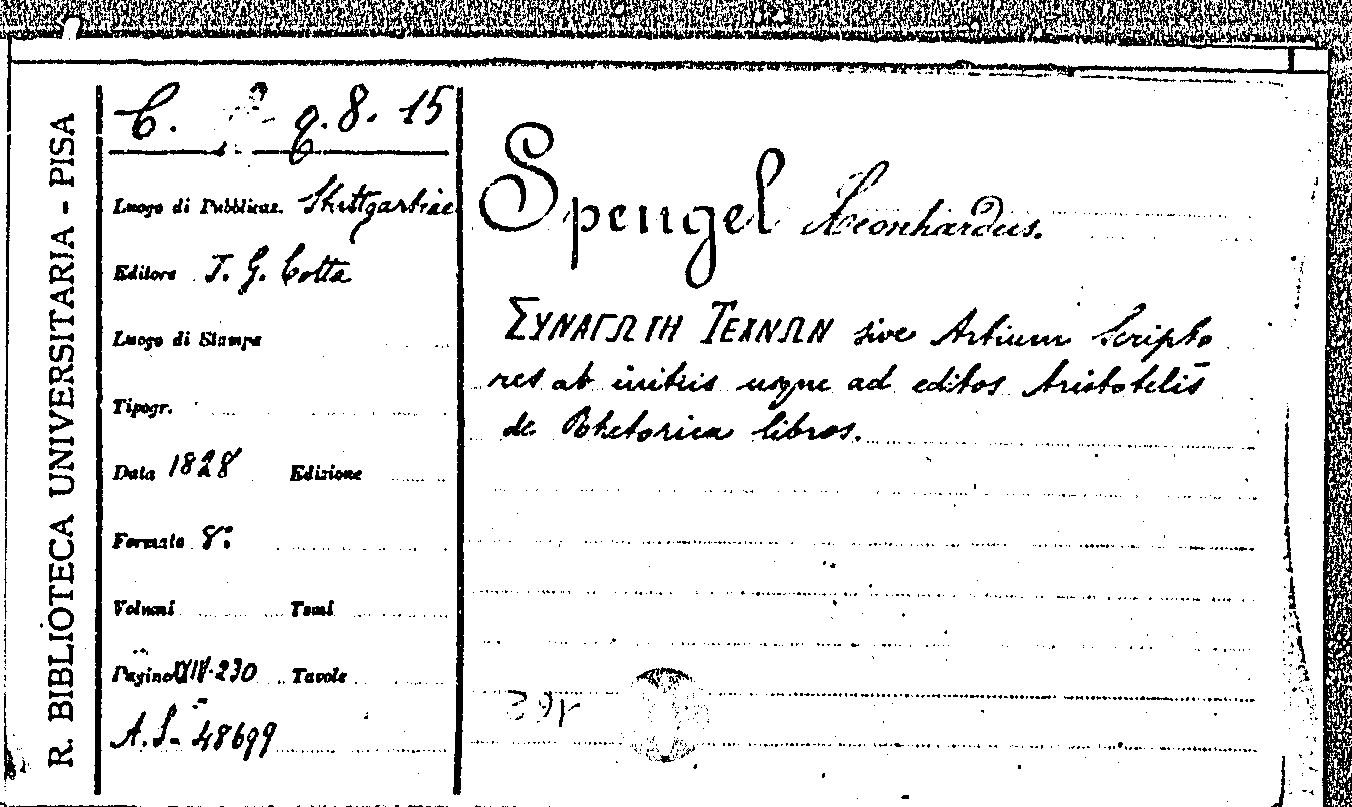 R. BIBLIOTECA UNIVERSITARIA - PISA
C. q. 8. 15
Luogo di Pubblicaz. Stuttgartiae
Editore J. G. Cotta
Luogo di Stampa
Tipogr.
Data 1828 Edizione
Formato 8:
Volumi Tomi
Pagine XIV-230 Tavole
A. S- 48699
Spengel Leonhardus.
ΣΥΝΑΓΩΓΗ ΤΕΧΝΩΝ sive Artium Scripto
res ab initiis usque ad editos Aristotelis
de Rhetorica libros.